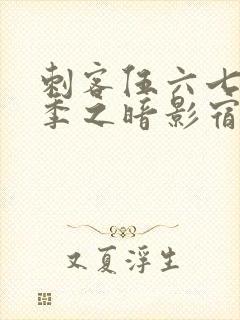 刺客伍六七
季之暗影宿
又夏浮生